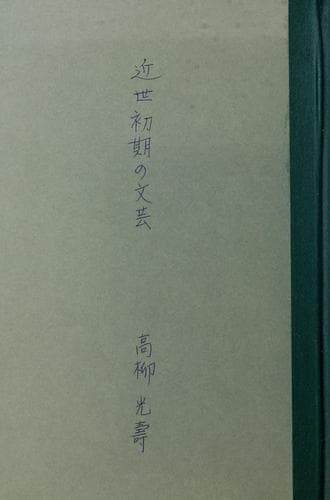 近世初期の文芸
高柳光壽